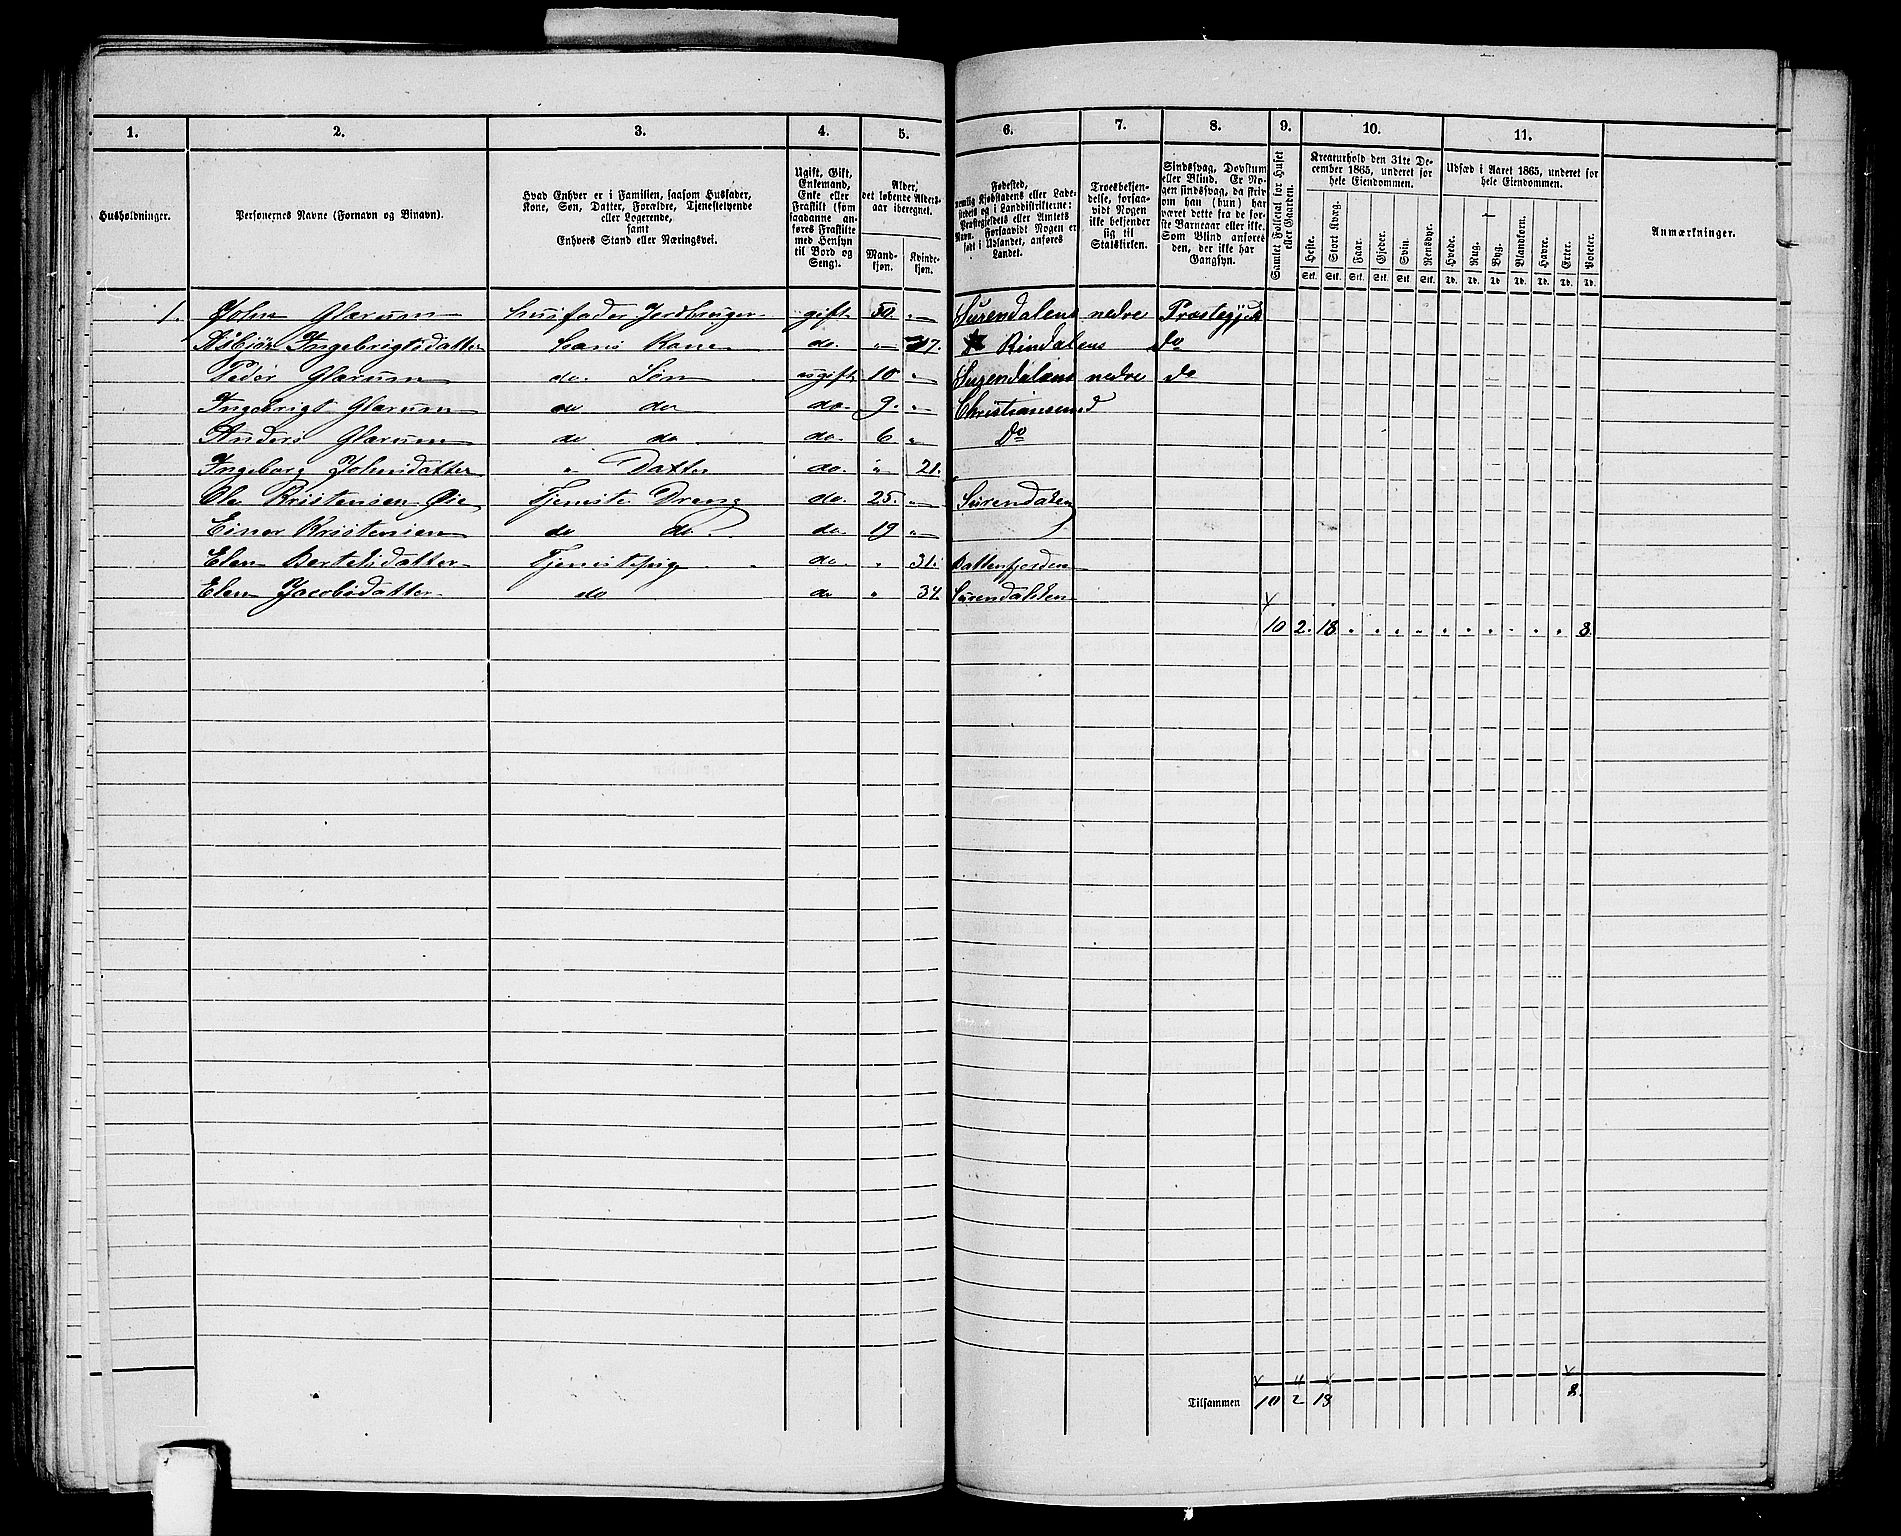 1. 2. 3. 4. 5. 6. 7. 8. 9. 10. 11.
Husholdninger.
Personernes Navne (Fornavn og Binavn).
Hvad Enhver er i Familien, saasom Husfader,
Kone, Søn, Datter, Forældre, Tjenestetyende
eller Logerende,
samt
Enhvers Stand eller Næringsvei.
Ugift, Gift,
Enkemand,
Enke eller
Fraskilt (som
saadanne an-
føres Fraskilte
med Hensyn
til Bord og
Seng).
Alder,
det løbende Alders-
aar iberegnet.
Mand-
kjøn.
Kvinde-
kjøn.
Fødested,
nemlig Kjøbstadens eller Lade-
stedets og i Landdistrikterne:
Præstegjeldets eller Amtets
Navn. Forsaavidt Nogen er
født i Udlandet, anføres
Landet.
Troesbekjen-
delse, forsaa-
vidt Nogen
ikke bekjender
sig til
Statskirken.
Sindssvag, Døvstum
eller Blind. Er No-
gen sindssvag, da skriv
om han (hun) har
været dette fra de før-
ste Barneaar eller ikke.
Som Blind anføres
den, der ikke har
Gangsyn.
Samlet Folketal for Huset
eller Gaarden.
Kreaturhold den 31te De-
cember 1865, underet for
hele Eiendommen.
Heste. Stort Kvæg. Faar. Gjeder. Svin. Rensdyr.
Stk. Stk. Stk. Stk. Stk. Stk.
Udsæd i Aaret 1865, underet for
hele Eiendommen.
Hvede. Rug. Byg. Blandkorn. Havre. Erter. Poteter.
Td. Td. Td. Td. Td. Td. Td.
Anmærkninger.
1. John Glærum Husfader Jordbruger gift 50. " Surendalens nedre Præstegjeld
Asbjør Ingebrigtsdatter Hans Kone do. " 47. Rindalens do
Peder Glærum do. Søn ugift 10 " Surendalens nedre do
Ingebrigt Glærum do do do. 9. " Christiansund
Anders Glærum do do do. 6 " Do
Ingeborg Johnsdatter " Datter do. " 21.
Ole Kristensen Øie Tjeneste Dreng do. 25. " Surendalen
Einar Kristensen do do. do. 19 "
Elen Bertelsdatter Tjenestepige do. " 31. Battenfjorden
Elen Jacobsdatter do do " 34 Surendalen
10 2. 18 " " " " " " " " " " 8.
Tilsammen 10 2 18 8.